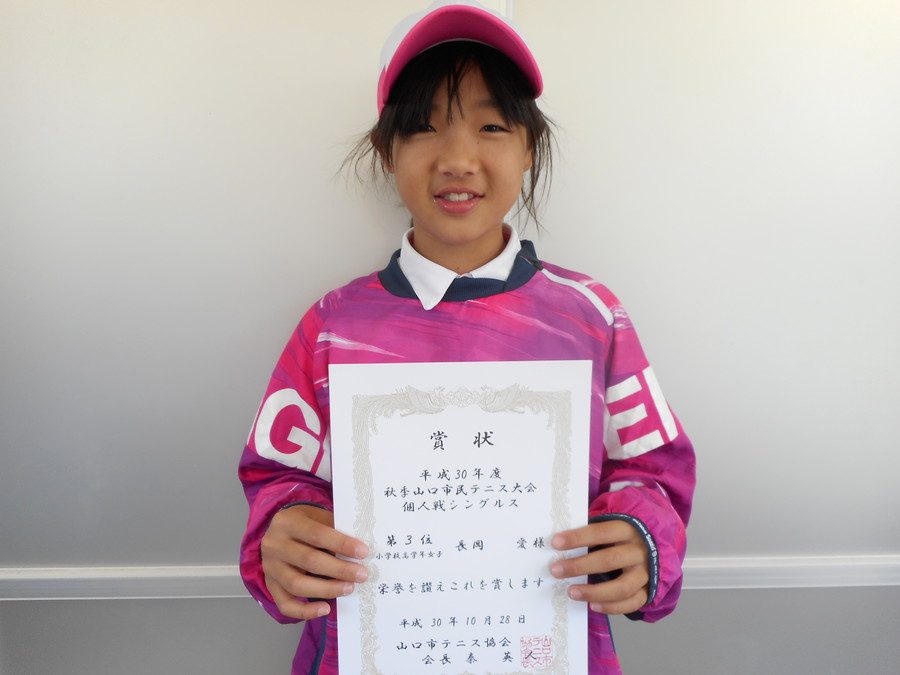 賞状
平成30年度
秋季山口市民テニス大会
個人戦シングルス
第3位 長岡 愛様
小学校高学年女子
栄誉を讃えこれを賞します
平成30年10月28日
山口市テニス協会
会長 秦 英人